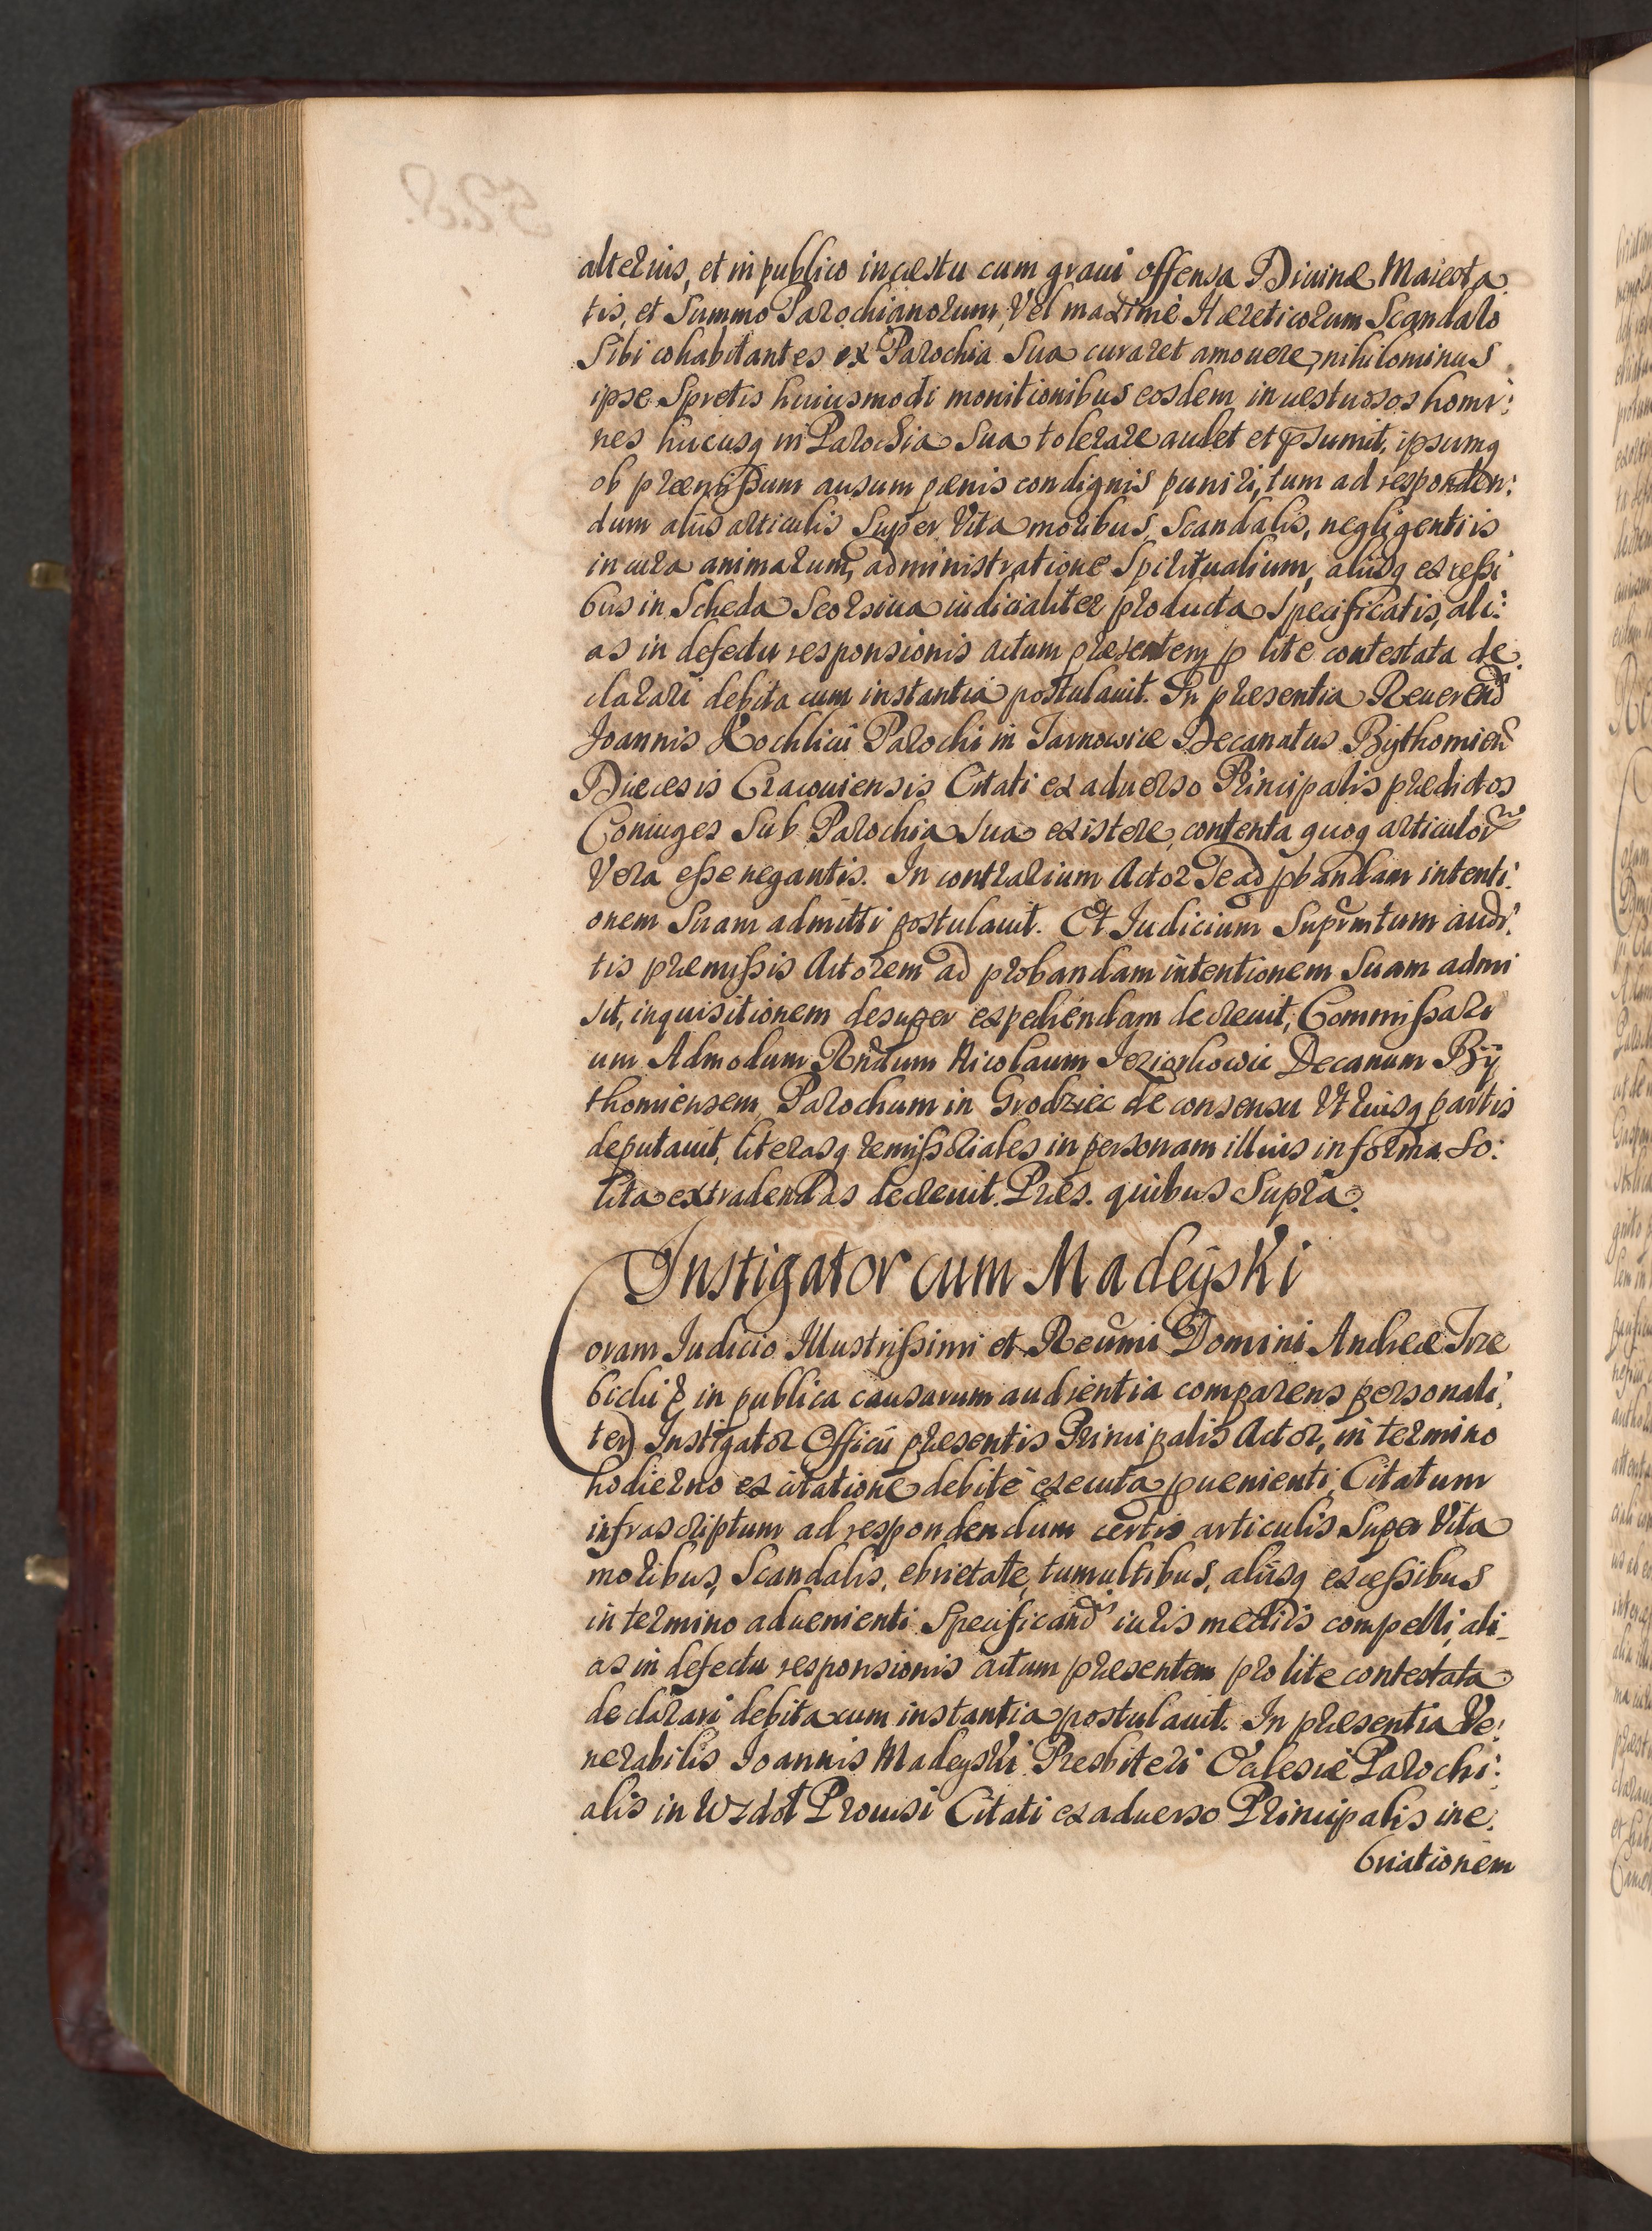 alterius, et in publico incaestu cum graui offensa Diuinae Maiesta:
tis, et Summo Parochianorum, Vel maxime Haereticorum Scandalo
Sibi cohabitantes ex Parochia Sua curaret amouere, nihilominus
ipse Spretis huiusmodi monitionibus eosdem incestuosos homi:
nes hucusq in Parochia Sua tolerare audet et psumit, ipsumq
ob praemissum ausum paenis condignis puniri, tum ad responden:
dum aliis articulis Super Vita moribus, Scandalis, negligentiis
in cura animarum, administratione Spiritualium, aliisq excessi
bus in Scheda Seorsiua iudicialiter producta Specificatis, ali:
as in defectu responsionis actum praesentem p lite contestata de:
clarari debita cum instantia postulauit. In praesentia Reuerend
Joannis Kochlicii Parochi in Tarnowice Decanatus Bythomien
Diaecesis Cracouiensis Citati ex aduerso Principalis praedictos
Coniuges Sub Parochia Sua existere, contenta quoq articulor
Vera esse negantis. In contrarium Actor Se ad pbandam intenti:
onem Suam admitti postulauit. Et Judicium Suprmtum audi:
tis praemissis Actorem ad probandam intentionem Suam admi
sit, inquisitionem desuper expediendam decreuit, Commissari
um Admodum Rndum Nicolaum Jeziorkowic Decanum By
thomiensem, Parochum in Grodziec de consensu Vtriusq partis
deputauit, literasq remissoriales in personam illius in forma So:
lita extradendas decreuit. Praes. quibus Supra.
Instigator cum Madeyski
Coram Judicio Illustrissimi et Reumi Domini Andreae Trze
bicki & in publica causarum audientia comparens personali:
ter Instigator Officii praesentis Principalis Actor, in termino
hodierno ex citatione debite executa puenienti, Citatum
infrascriptum ad respondendum certis articulis Super Vita
moribus, Scandalis, ebrietate, tumultibus, aliisq excessibus
in termino aduenienti Specificand iuris mediis compelli, ali_
as in defectu responsionis actum praesentem pro lite contestata
declarari debita cum instantia postulauit. In praesentia Ve:
nerabilis Joannis Madeyski Presbiteri Eclesiae Parochi:
alis in Wzdol Prouisi Citati ex aduerso Principalis ine:
briationem